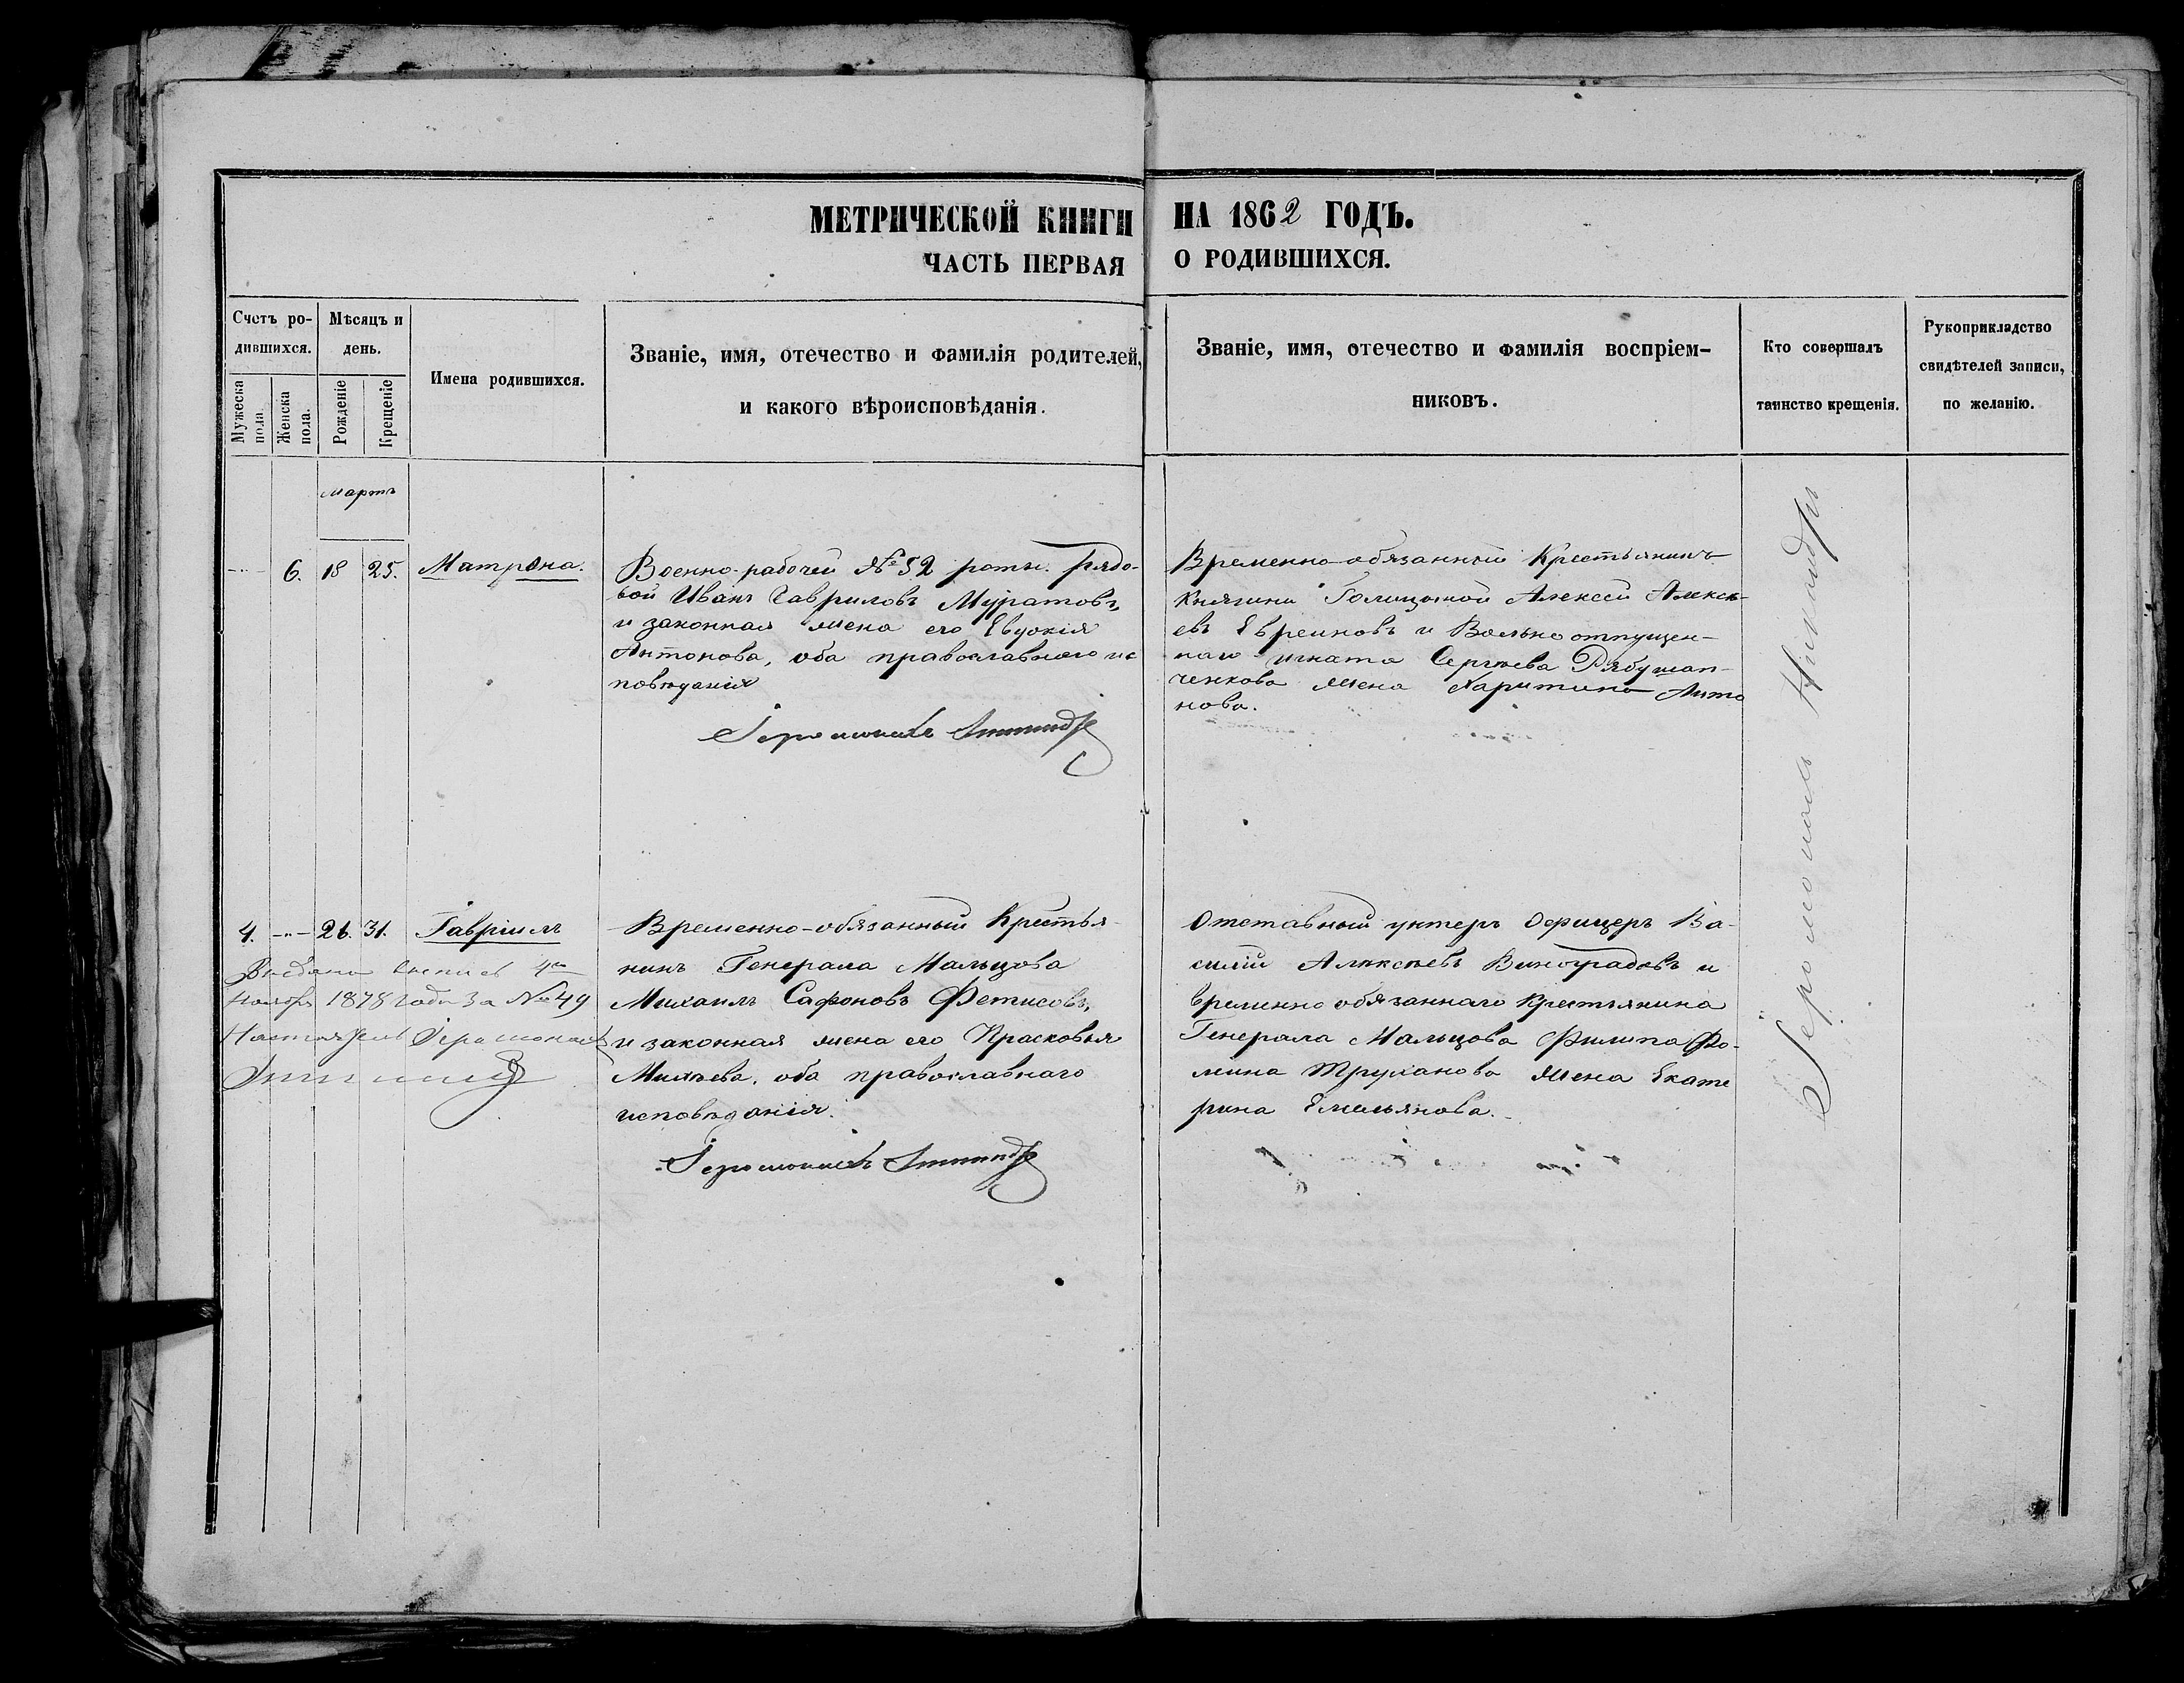 МЕТРИЧЕСКОЙ КНИГИ НА 1862 ГОДЪ.
ЧАСТЬ ПЕРВАЯ О РОДИВШИХСЯ.
Счетъ ро-
дившихся.
Мужеска
пола.
Женска
пола.
Мѣсяцъ и
день.
Рожденіе
Крещеніе
Имена родившихся.
Званіе, имя, отечество и фамилія родителей,
и какого вѣроисповѣданія.
Званіе, имя, отечество и фамилія воспріем-
никовъ.
Кто совершалъ
таинство крещенія.
Рукоприкладство
свидѣтелей записи,
по желанію.
Мартъ
6. 18 25. Матрона.
Военно-рабочей № 52 роты. рядо-
вой Иванъ Гавриловъ Муратовъ,
и законная жена его Евдокія
Антонова, оба православнаго ис
повѣданія
Іеромонахъ
Временно-обязанный Крестьянинъ
Княгини Голицыной Алексей Алексѣ-
евъ Евреиновъ и Вольно отпущен-
наго Игната Сергѣева Рябушап-
ченкова жена Харитина Анто
нова.
Іеромонахъ
4. -"- 26. 31. Гавріилъ
Выдана выпись 4го
Ноября 1878 года за № 49
Настоятель Іеромонахъ
Временно-обязанный Крестья-
нинъ Генерала Мальцова
Михаилъ Сафоновъ Фетисовъ,
и законная жена его Прасковья
Михѣева, оба православнаго
исповѣданія.
Іеромонахъ
Отставный унтеръ Офицеръ Ва-
силій Алексѣевъ Виноградовъ и
временно обязаннаго Крестьянина
Генерала Мальцова Филипа Фо-
мина Труханова жена Екате
рина Емельянова.